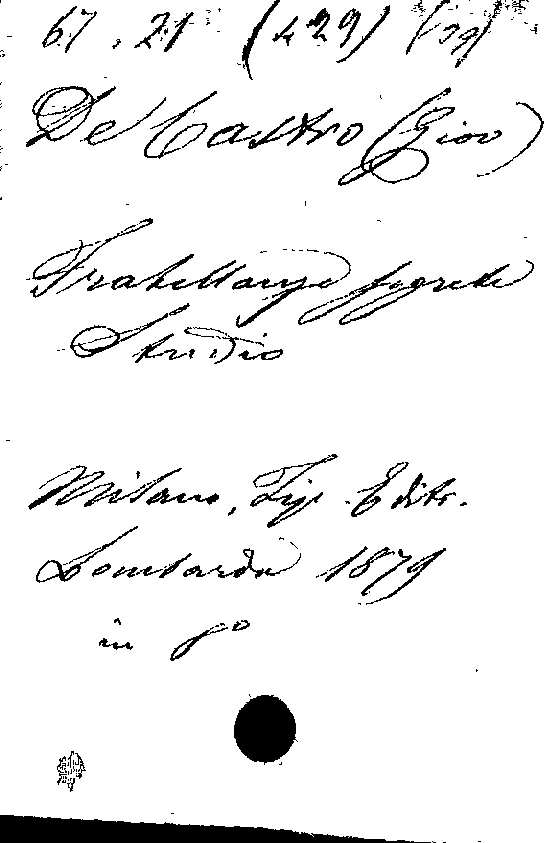 67. 21 (429)
De Castro (Giov)
Fratellanze segrete
Studio
Milano, Tip. Editr.
Lombarda 1879
in 8º